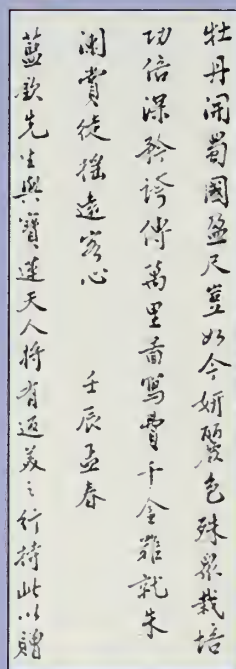 牡丹開蜀國盈尺豈如今妍麗色殊衆栽培
功倍深矜誇傳萬里圖寫費千金難就朱
闌賞徒搖遠客心 壬辰孟春
藍欽先生與寶蓮夫人將有遊美之行持此以贈